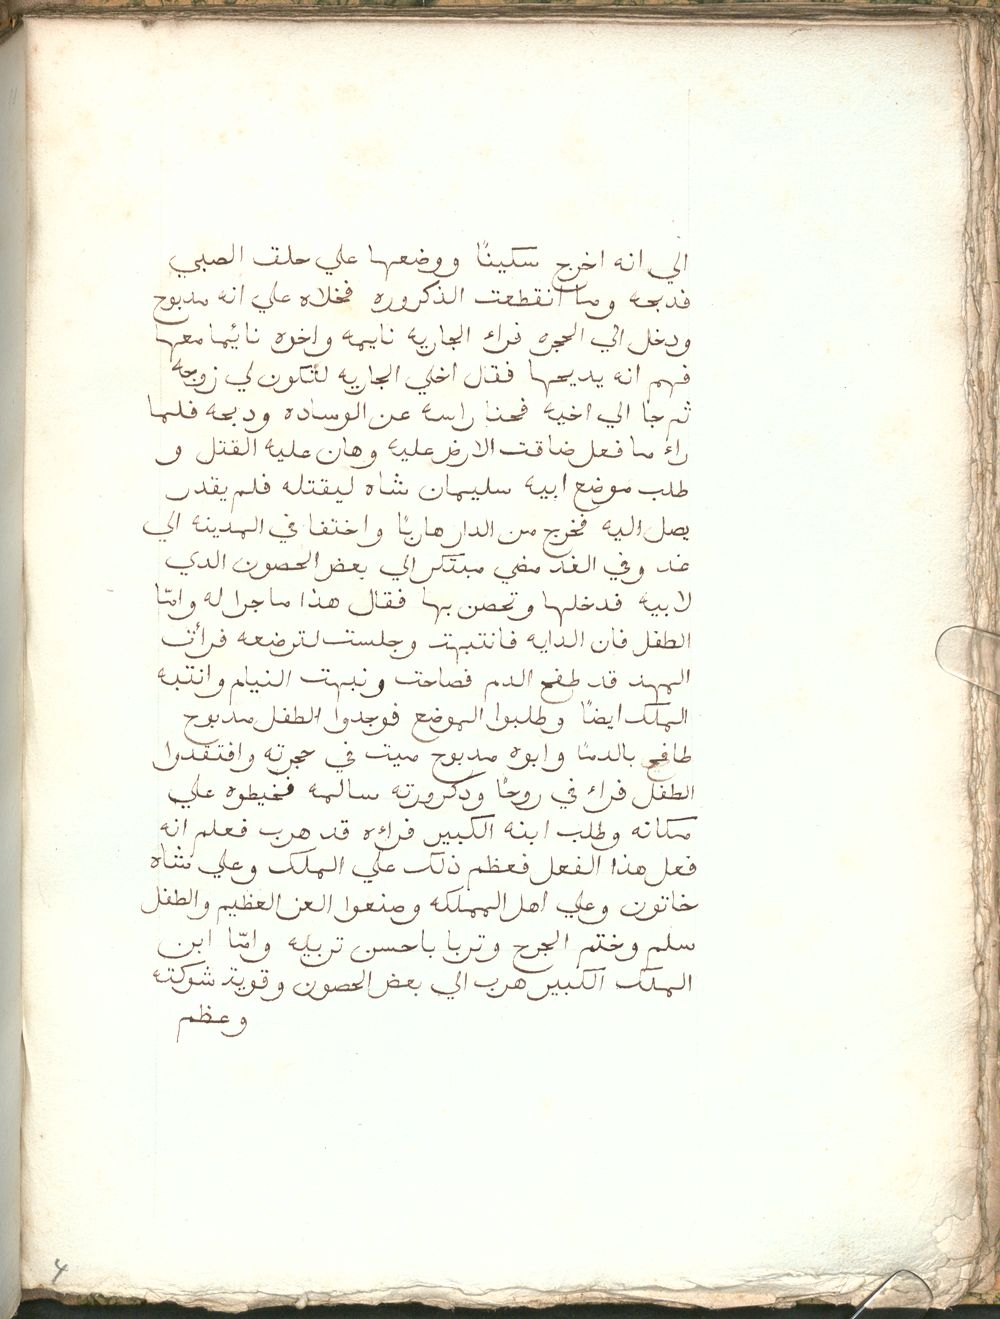 الي انه اخرج سكينًا ووضعها علي حلق الصبي
فدبحه وما انقطعت الذكروره فخلاه علي انه مدبوح
ودخل الي الحجره فراء الجاريه نايمه واخوه نائيما معها
فهم انه يدبحها فقال اخلي الجاريه لتكون لي زوجه
ثم جا الي اخيه فحنا راسه عن الوساده ودبحه فلما
راء ما فعل ضاقت الارض عليه وهان عليه القتل و
طلب موضع ابيه سليمان شاه ليقتله فلم يقدر
يصل اليه فخرج من الدار هاربًا واختفا في المدينه الي
غد وفي الغد مضي مبتكر الي بعض الحصون الدي
لابيه فدخلها وتحصن بها فقال هذا ماجرا له وامّا
الطفل فان الدايه فانتبهت وجلست لترضعه فرأت
المهد قد طفح الدم فصاحت ونبهت النيام وانتبه
الملك ايضًا وطلبوا الموضع فوجدوا الطفل مدبوح
طافح بالدما وابوه مدبوح ميت في حجرته وافتقدوا
الطفل فراء في روحًا ودكرورته سالمه فخيطوه علي
مكانه وطلب ابنه الكبير فراءه قد هرب فعلم انه
فعل هذا الفعل فعظم ذلك علي الملك وعلي شاه
خاتون وعلي اهل المملكه وصنعوا العز العظيم والطفل
سلم وختم الجرح وتربا باحسن تربيه وامّا ابن
الملك الكبير هرب الي بعض الحصون وقوية شوكته
وعظم
4